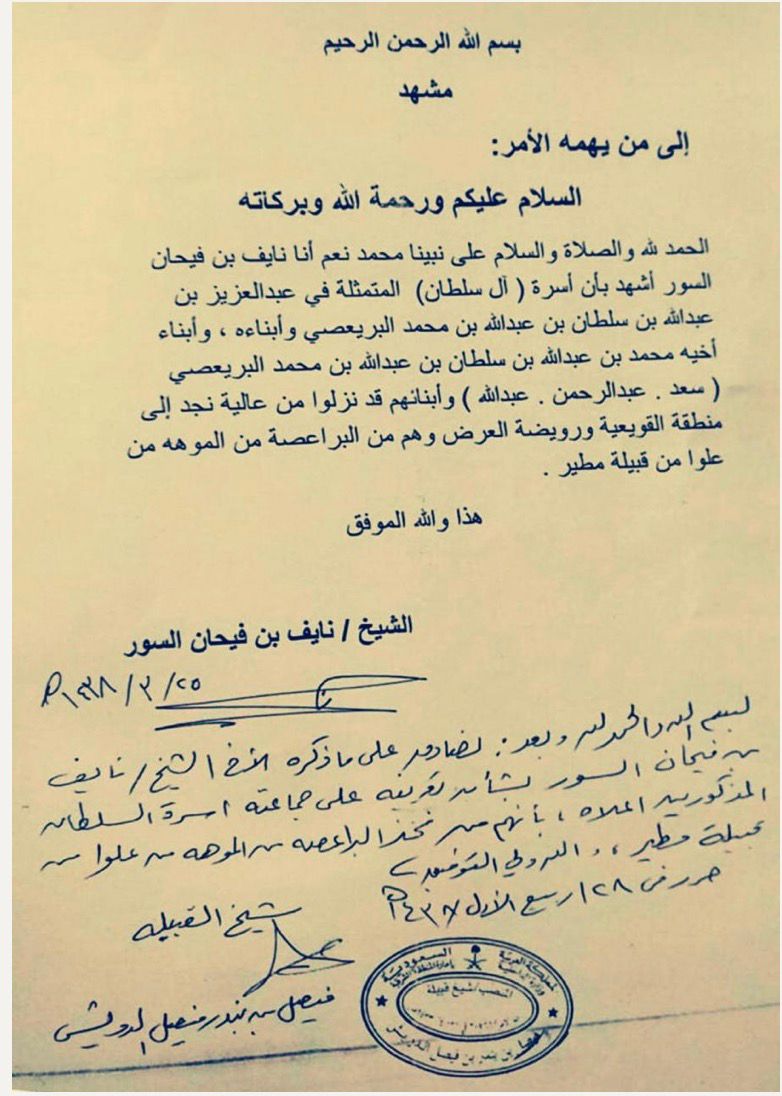 بسم الله الرحمن الرحيم
مشهد
إلى من يهمه الأمر:
السلام عليكم ورحمة الله وبركاته
الحمد لله والصلاة والسلام على نبينا محمد نعم أنا نايف بن فيحان
السور أشهد بأن أسرة ( آل سلطان) المتمثلة في عبدالعزيز بن
عبدالله بن سلطان بن عبدالله بن محمد البريعصي وأبناءه ، وأبناء
أخيه محمد بن عبدالله بن سلطان بن عبدالله بن محمد البريعصي
( سعد . عبدالرحمن . عبدالله ) وأبنائهم قد نزلوا من عالية نجد إلى
منطقة القويعية ورويضة العرض وهم من البراعصة من الموهه من
علوا من قبيلة مطير .
هذا والله الموفق
الشيخ / نايف بن فيحان السور
٢٥ / ٣ / ١٤٣٨ هـ
بسم الله والحمد لله وبعد : نصادق على ما ذكره الأخ الشيخ / نايف
بن فيحان السور بشأن تعريفه على جماعته اسرة السلطان
المذكورين اعلاه ، بأنهم من فخذ البراعصه من الموهه من علوا من
قبيلة مطير ، والله ولي التوفيق
حرر في ٢٨ / ربيع الأول ١٤٣٨ هـ
شيخ القبيله
فيصل بن بندر فيصل الدويش
المملكة العربية السعودية
وزارة الداخلية
بإمارة المنطقة الشرقية
المنصب / شيخ قبيلة
فيصل بن بندر بن فيصل الدويش